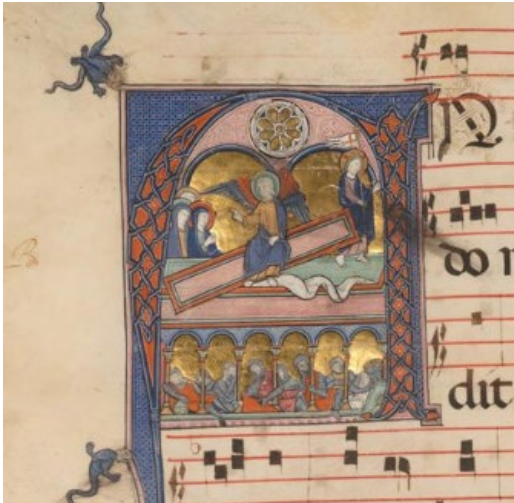 AN
do
dit